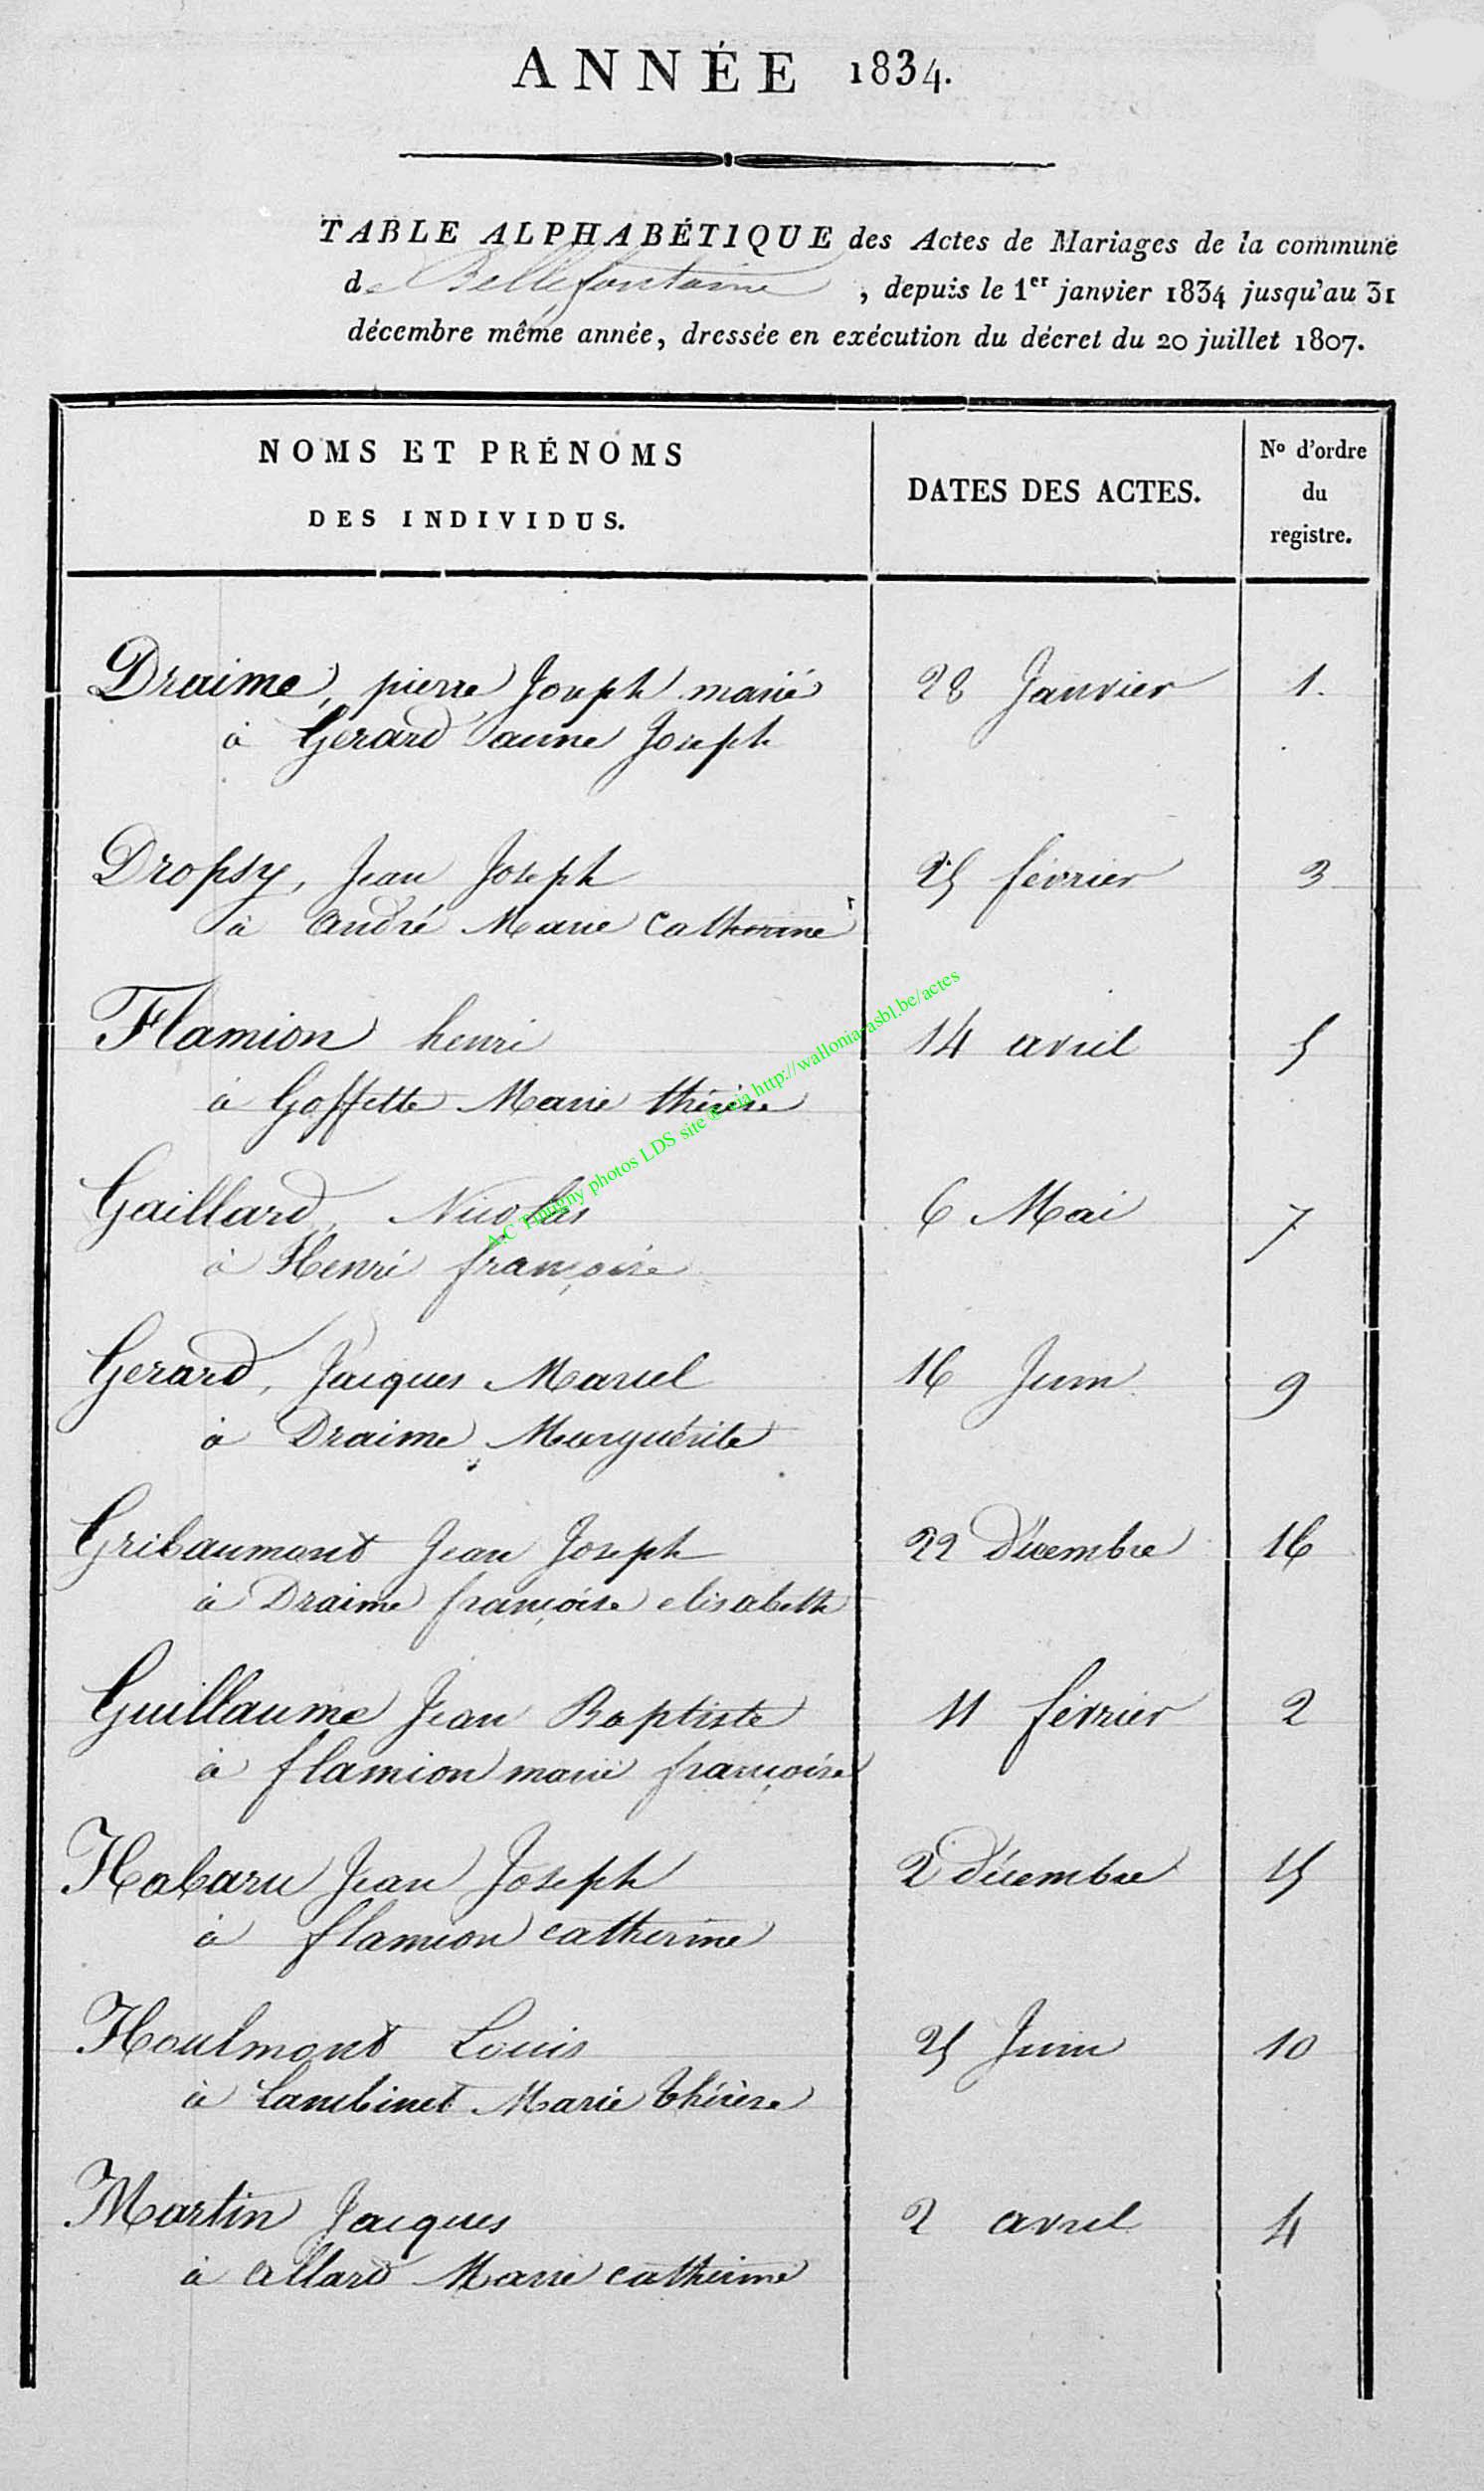 ANNÉE 1834.
TABLE ALPHABÉTIQUE des Actes de Mariages de la commune
de Bellefontaine, depuis le 1er janvier 1834 jusqu'au 31
décembre même année, dressée en exécution du décret du 20 juillet 1807.
NOMS ET PRÉNOMS
DES INDIVIDUS.
DATES DES ACTES.
No d'ordre
du
registre.
Draime, pierre Joseph marié 28 Janvier 1.
à Gérard anne Joseph
Dropsy, Jean Joseph 25 février 3
à André Marie Catherine
Flamion henri 14 avril 5
à Goffette Marie thérèse
Gaillard, Nicolas 6 Mai 7
à Henri françoise
Gerard, Jacques Marcel 16 Juin 9
à Draime Marguérite
Gribaumont Jean Joseph 22 Décembre 16
à Draime françoise elisabeth
Guillaume Jean Baptiste 11 février 2
à flamion marie françoise
Habaru Jean Joseph 2 décembre 15
à flamion catherine
Houlmont Louis 25 Juin 10
à Lambinet Marie thérèse
Martin Jacques 2 avril 4
à Allard Marie catherine
A.C Tintigny photos LDS site © via http://wallonia-asbl.be/actes